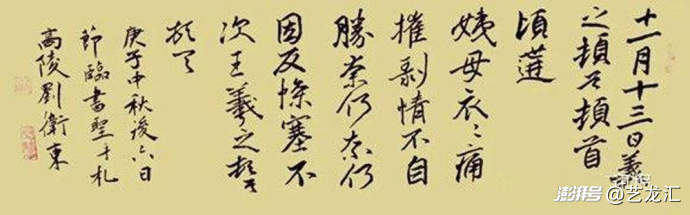 十一月十三日羲
之頓首頓首
頃遘
姨母哀〻痛
摧剝情不自
勝奈何奈何
因反慘塞不
次王羲之頓首
頓首
庚子中秋後六日
節臨書聖手札
高陵劉衛東
澎湃号@艺龙汇